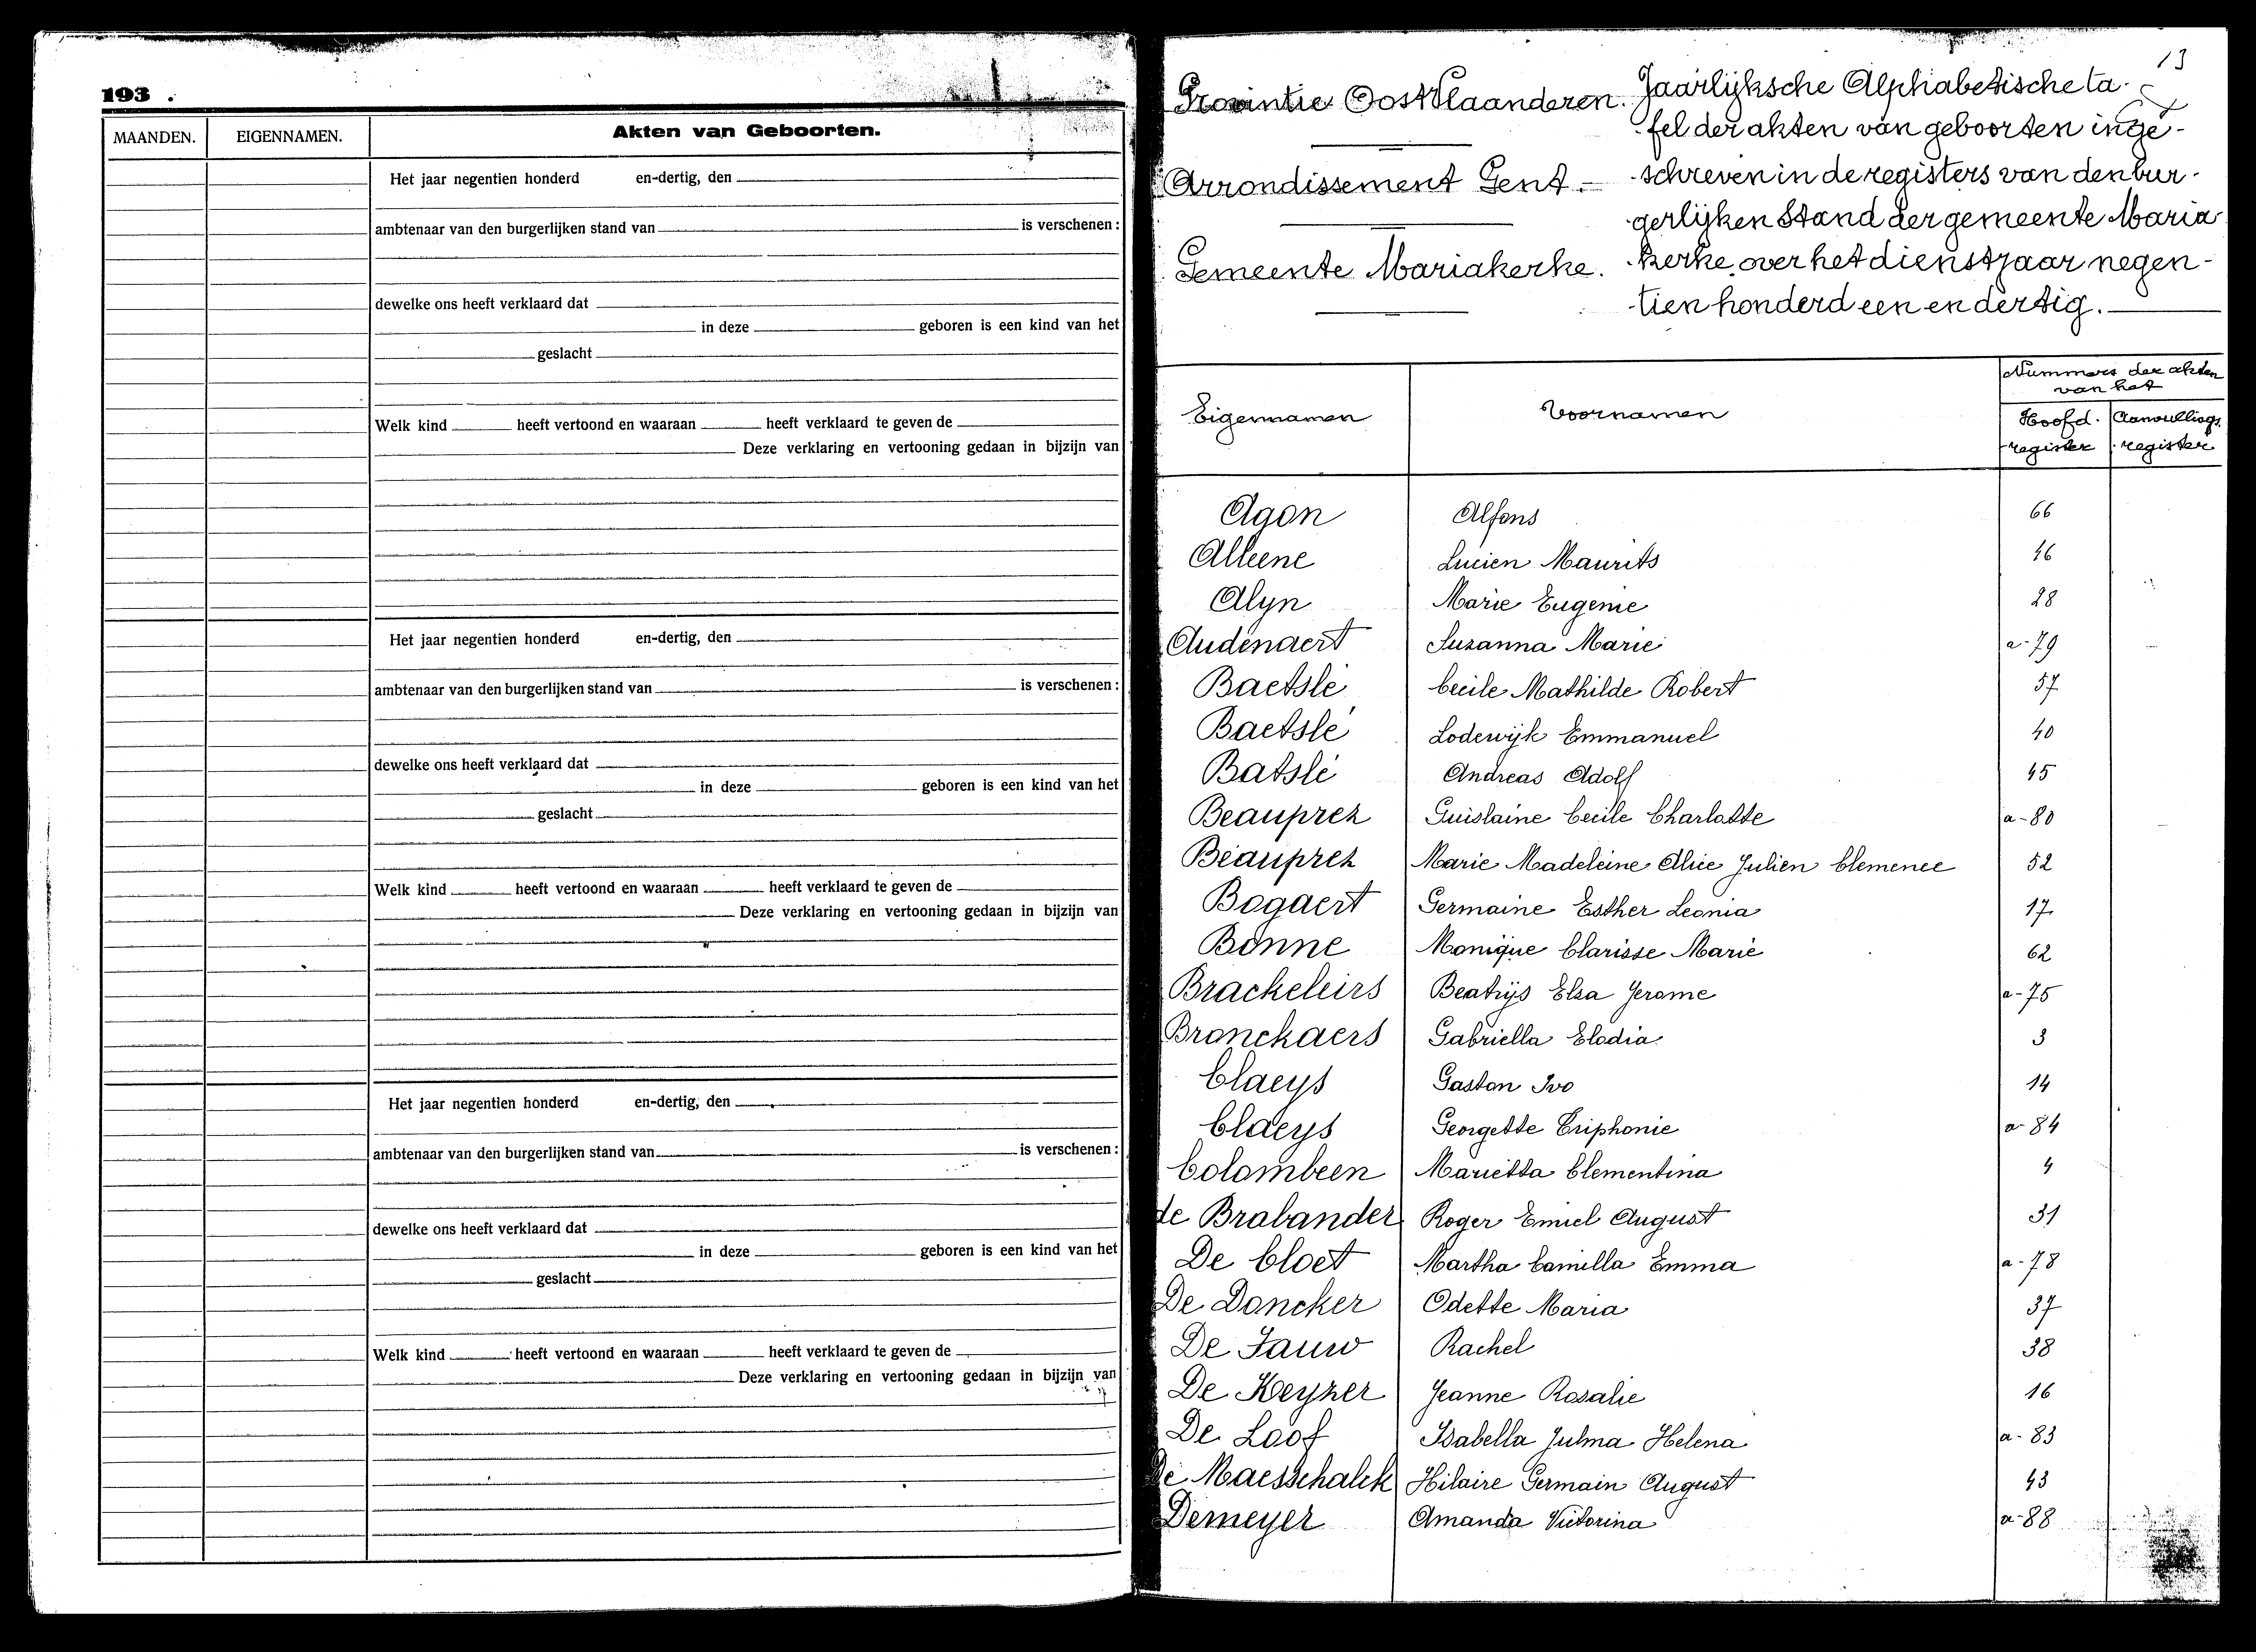 193 .
MAANDEN. EIGENNAMEN. Akten van Geboorten.
Het jaar negentien honderd en-dertig, den
ambtenaar van den burgerlijken stand van is verschenen :
dewelke ons heeft verklaard dat
in deze geboren is een kind van het
geslacht
Welk kind heeft vertoond en waaraan heeft verklaard te geven de
Deze verklaring en vertooning gedaan in bijzijn van
Het jaar negentien honderd en-dertig, den
ambtenaar van den burgerlijken stand van is verschenen :
dewelke ons heeft verklaard dat
in deze geboren is een kind van het
geslacht
Welk kind heeft vertoond en waaraan heeft verklaard te geven de
Deze verklaring en vertooning gedaan in bijzijn van
Het jaar negentien honderd en-dertig, den
ambtenaar van den burgerlijken stand van is verschenen :
dewelke ons heeft verklaard dat
in deze geboren is een kind van het
geslacht
Welk kind heeft vertoond en waaraan heeft verklaard te geven de
Deze verklaring en vertooning gedaan in bijzijn van
13
Provintie OostVlaanderen.
Arrondissement Gent.
Gemeente Mariakerke.
Jaarlijksche Alphabetische ta-
-fel der akten van geboorten inge-
-schreven in de registers van den bur-
-gerlijken Stand der gemeente Maria-
-kerke over het dienstjaar negen-
-tien honderd een en dertig.
Eigennamen Voornamen Nummers der akten
van het
Hoofd- Aanvullings
-register -register
Agon Alfons 66
Alleene Lucien Maurits 46
Alyn Marie Eugenie 28
Audenaert Suzanna Marie a-79
Baetslé Cecile Mathilde Robert 57
Baetslé Lodewijk Emmanuel 40
Batslé Andreas Adolf 45
Beauprez Guislaine Cecile Charlotte a-80
Beauprez Marie Madeleine Alice Julien Clemence 52
Bogaert Germaine Esther Leonia 17
Bonne Monique Clarisse Marie 62
Brackeleirs Beatrijs Elza Jerome a-75
Bronckaers Gabriella Elodia 3
Claeys Gaston Ivo 14
Claeys Georgette Triphonie a-84
Colombeen Marietta Clementina 4
de Brabander Roger Emiel August 31
De Cloet Martha Camilla Emma a-78
De Doncker Odette Maria 37
De Jauw Rachel 38
De Keyzer Jeanne Rosalie 16
De Loof Isabella Julma Helena a-83
De Maesschalck Hilaire Germain August 43
Demeyer Amanda Victorina a-88